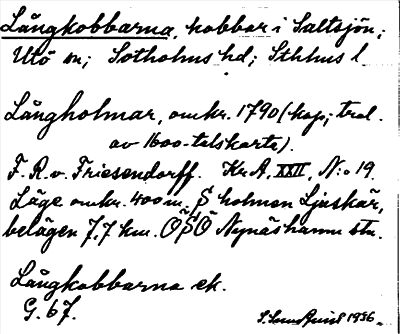 Långkobbarna, kobbar i Saltsjön;
Utö sn; Sotholms hd; Sthlms l.
Långholmar, omkr. 1790 (kop; trol.
av 1600-talskarta).
F. R. v. Friesendorff. Kr.A. XXII, N:o 19
Läge omkr. 400 m. S holmen Ljuskär,
belägen 7,7 km. OSO Nynäshamns stn.
Långkobbarna ek.
G. 67.
1936.